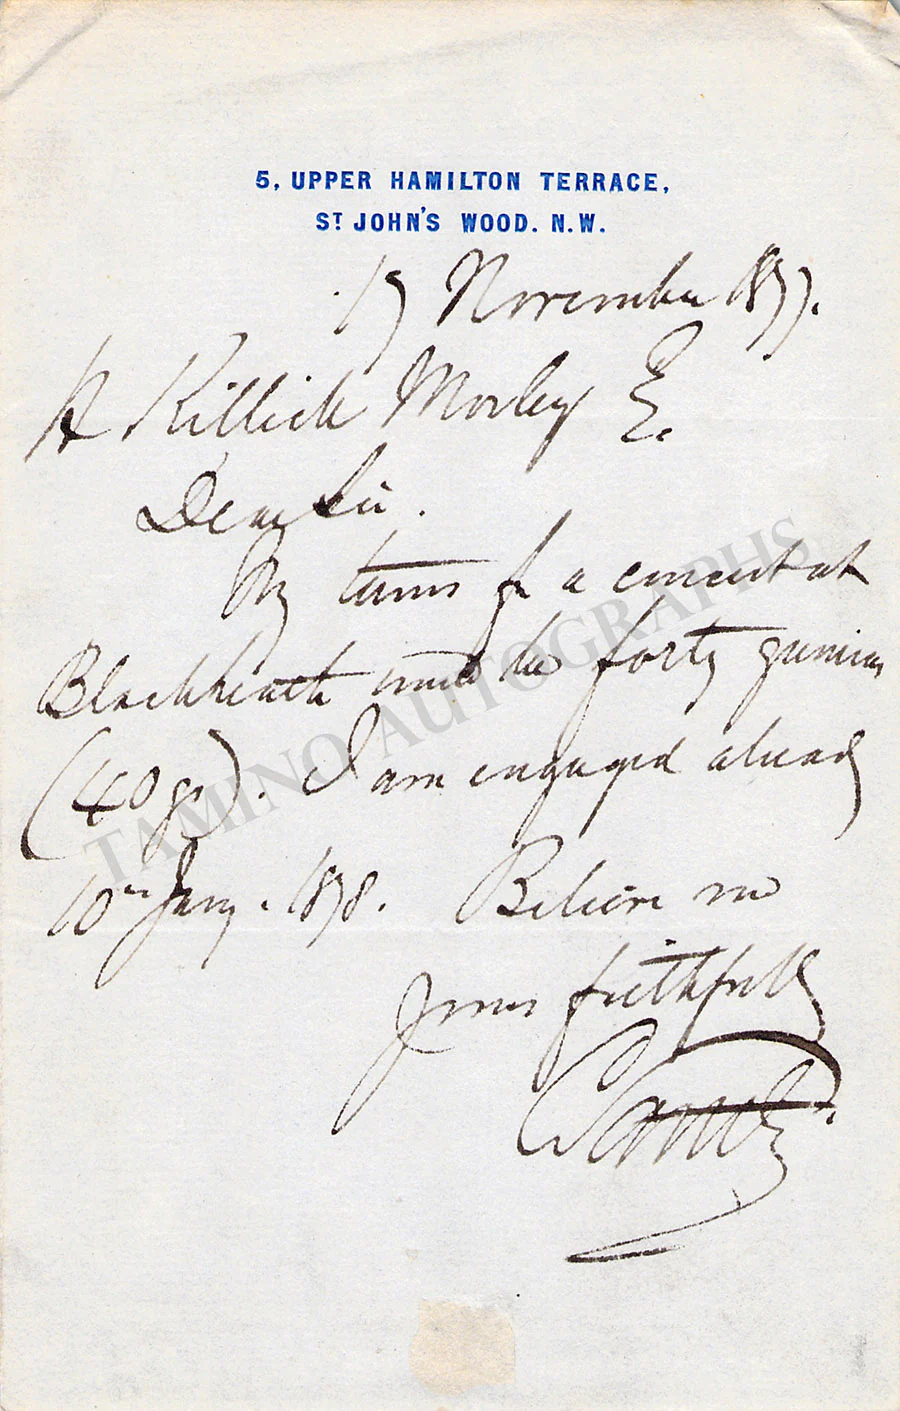 5, UPPER HAMILTON TERRACE,
ST JOHN'S WOOD. N.W.
19 November 1877.
H Killick Morley E.
Dear Sir.
My terms for a concert at
Blackheath would be forty guineas
(40 gs). I am engaged already
10th Jany. 1878. Believe me
Yours faithfully
CSantley
TAMINO AUTOGRAPHS